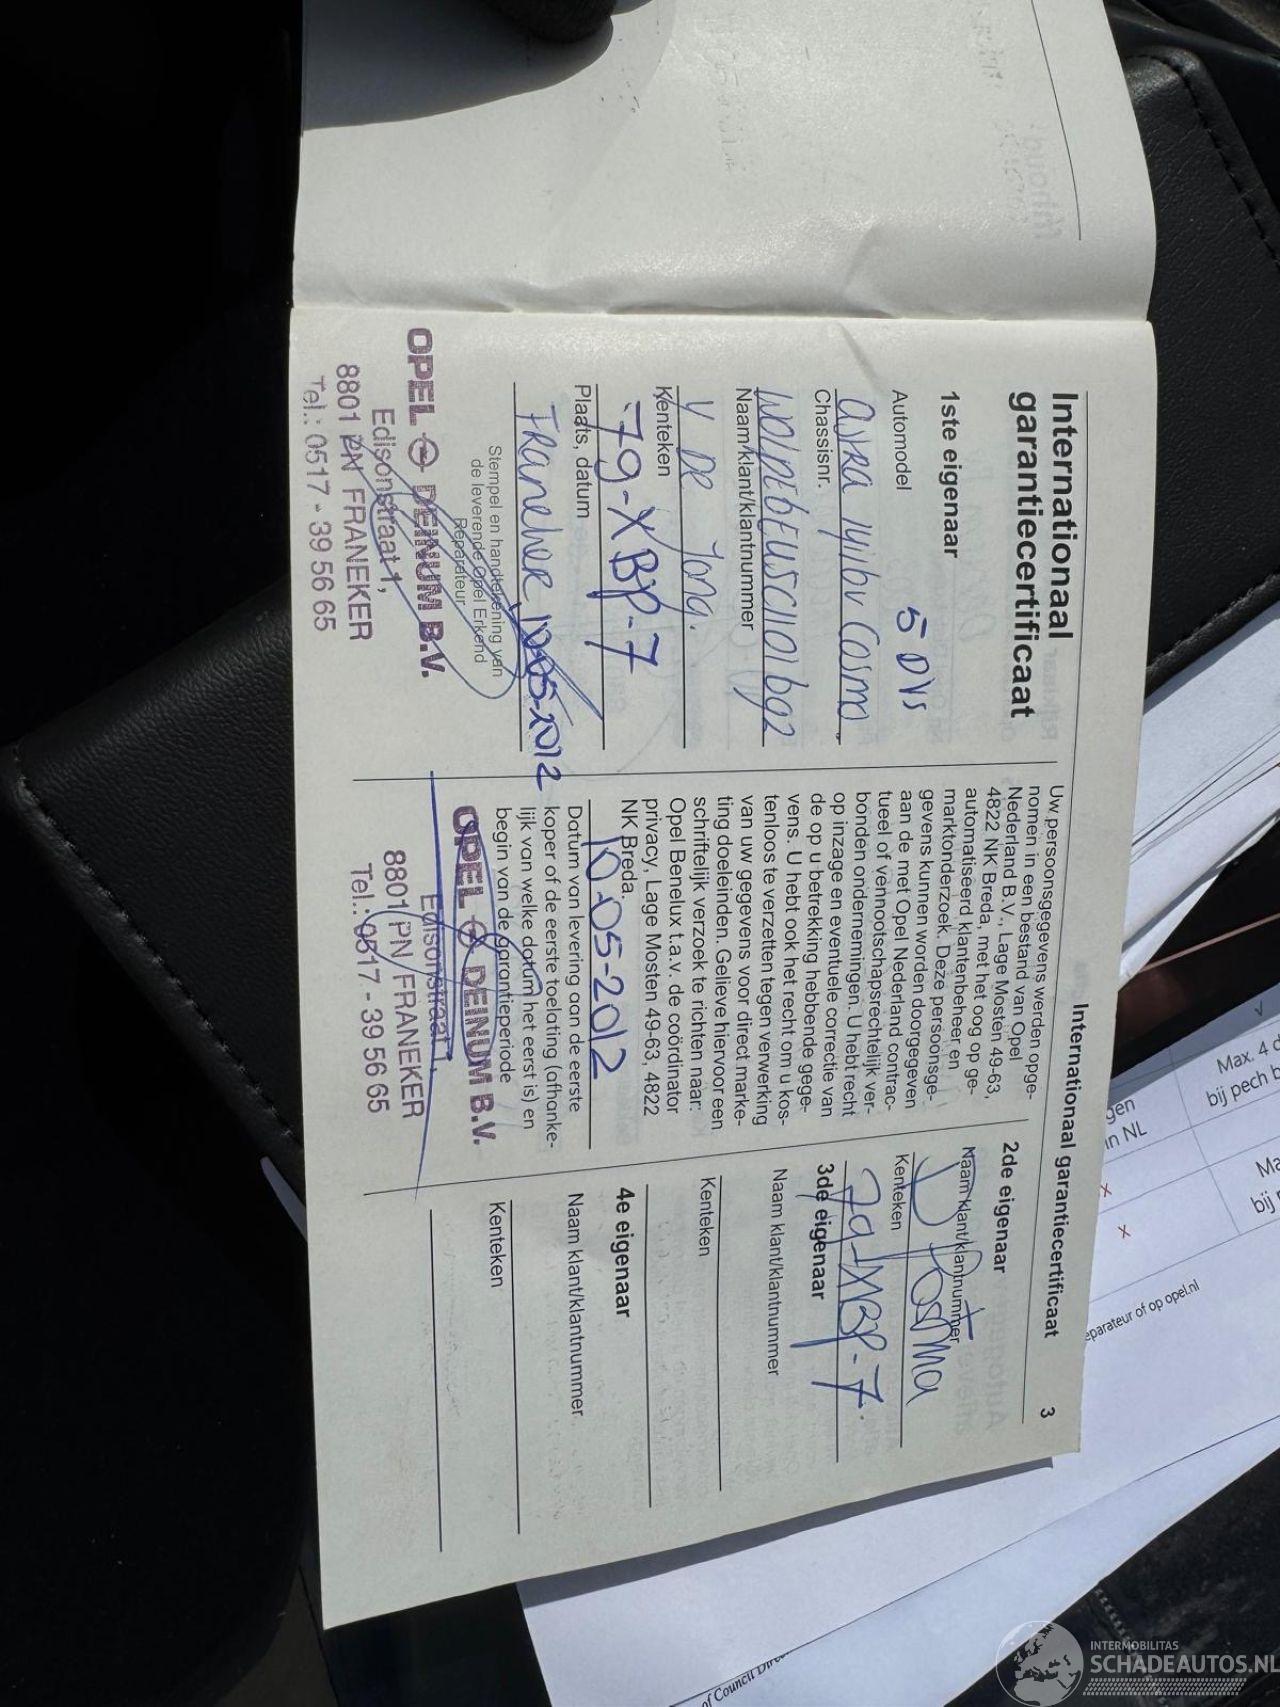 Internationaal garantiecertificaat
3
Internationaal
garantiecertificaat
1ste eigenaar
5 DRS
Automodel
Astra 1.4i 16v Cosmo
Chassisnr.
Naam/klant/klantnummer
Y De Jong.
Kenteken
79-XBP-7
Plaats, datum
Franeker 10-05-2012
Stempel en handtekening van
de leverende Opel Erkend
Reparateur
OPEL DEINUM B.V.
Edisonstraat 1,
8801 PN FRANEKER
Tel.: 0517 - 39 56 65
Uw persoonsgegevens werden opge-
nomen in een bestand van Opel
Nederland B.V., Lage Mosten 49-63,
4822 NK Breda, met het oog op ge-
automatiseerd klantenbeheer en
marktonderzoek. Deze persoonsge-
gevens kunnen worden doorgegeven
aan de met Opel Nederland contrac-
tueel of vennootschapsrechtelijk ver-
bonden ondernemingen. U hebt recht
op inzage en eventuele correctie van
de op u betrekking hebbende gege-
vens. U hebt ook het recht om u kos-
tenloos te verzetten tegen verwerking
van uw gegevens voor direct marke-
ting doeleinden. Gelieve hiervoor een
schriftelijk verzoek te richten naar:
Opel Benelux t.a.v. de coördinator
privacy, Lage Mosten 49-63, 4822
NK Breda.
10-05-2012
Datum van levering aan de eerste
koper of de eerste toelating (afhanke-
lijk van welke datum het eerst is) en
begin van de garantieperiode
OPEL DEINUM B.V.
Edisonstraat 1,
8801 PN FRANEKER
Tel.: 0517 - 39 56 65
2de eigenaar
Naam klant/klantnummer
D Postma
Kenteken
79-XBP-7.
3de eigenaar
Naam klant/klantnummer
Kenteken
4e eigenaar
Naam klant/klantnummer
Kenteken
Max. 4 d
bij pech b
gen
in NL
Ma
bij
x
x
eparateur of op opel.nl
of Council Dire
INTERMOBILITAS
SCHADEAUTOS.NL